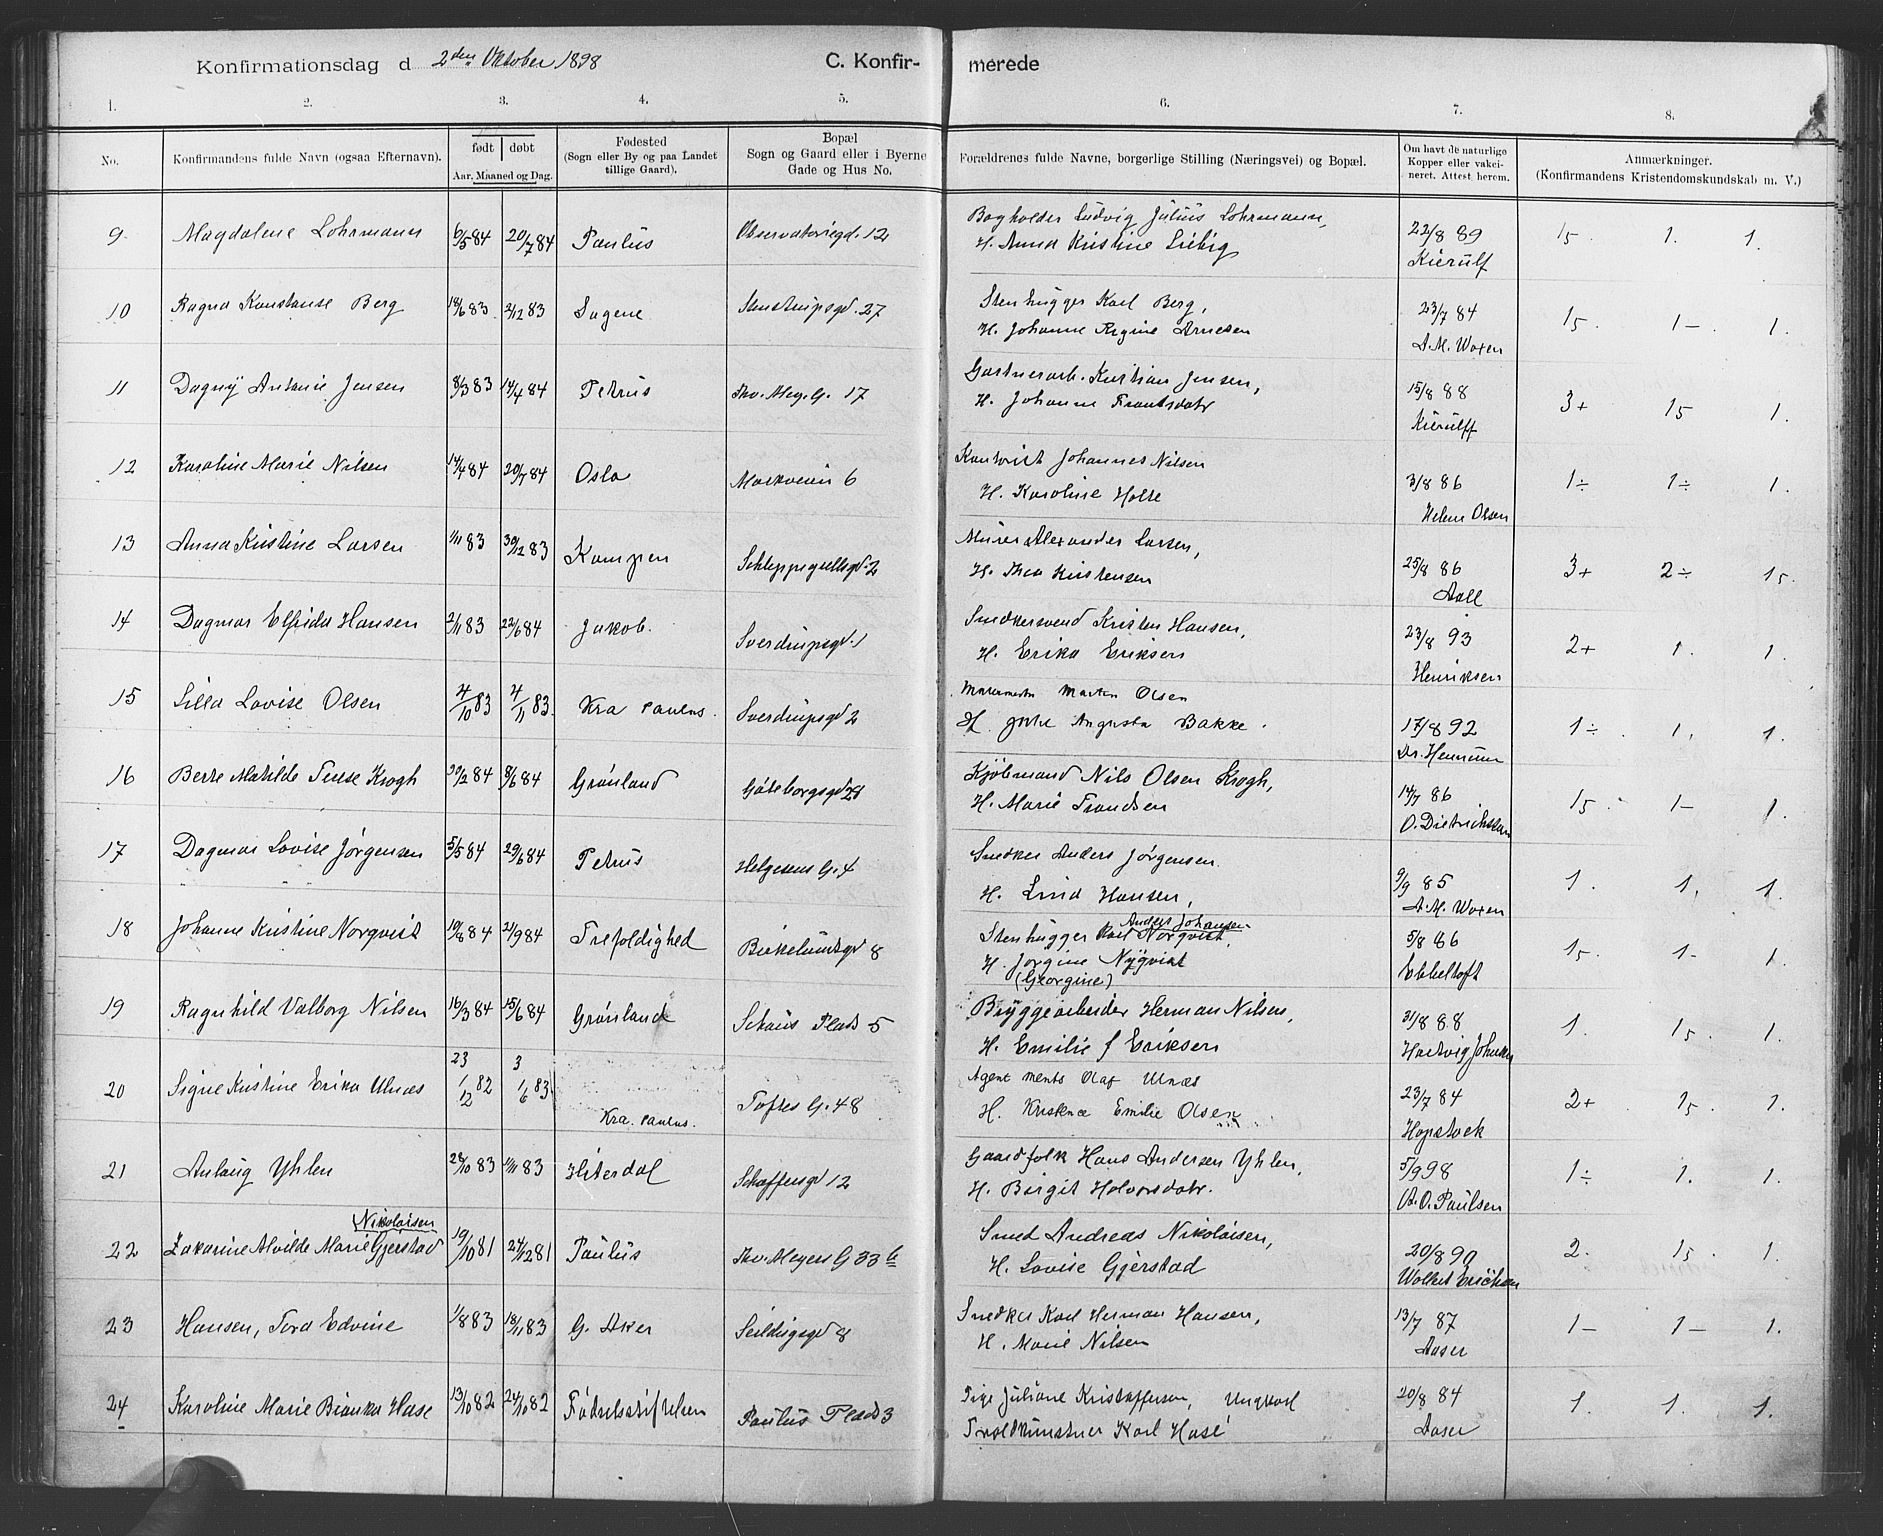 Konfirmationsdag d 2den Oktober 1898
C. Konfir- merede
1. 2. 3. 4. 5. 6. 7. 8.
No.
Konfirmandens fulde Navn (ogsaa Efternavn).
født døbt
Aar, Maaned og Dag.
Fødested
(Sogn eller By og paa Landet
tillige Gaard).
Bopæl
Sogn og Gaard eller i Byerne
Gade og Hus No.
Forældrenes fulde Navne, borgerlige Stilling (Næringsvei) og Bopæl.
Om havt de naturlige
Kopper eller vakci-
neret. Attest herom.
Anmærkninger.
(Konfirmandens Kristendomskundskab m. V.)
9. Magdalene Lohrmann 6/5 84 20/7 84 Paulus Observatoriegd. 12
Bogholder Ludvig Julius Lohrmann,
H. Anna Kristine Liebig
22/8 89
Kierulf
15. 1. 1.
10 Ragna Konstanse Berg 18/6 83. 2/12 83 Sagene Stenstrupsgd. 27
Stenhugger Karl Berg,
H. Johanne Regine Arnesen
23/7 84
A. M. Woxen
15. 1- 1.
11 Dagny Antonie Jensen 8/3 83 14/4 84 Petrus Thv. Mey. G. 17
Gartnerarb. Kristian Jensen,
H. Johanne Frantsdatr
15/8 88
Kierulff
3+ 15 1.
12 Karoline Marie Nilsen 14/4 84 20/7 84 Oslo Markveien 6
Kontorist Johannes Nilsen
H. Karoline Holte
3/8 86
Helene Olsen
1÷ 1÷ 1.
13 Anna Kristine Larsen 1/11 83 30/12 83 Kampen Schleppegrellsgd. 2
Murer Alexander Larsen,
H. Thea Kristensen
25/8 86
Aall
3+ 2÷ 15.
14 Dagmar Elfrida Hansen 2/11 83 22/6 84 Jakob. Sverdrupsgd. 1
Snedkersvend Kristen Hansen,
H. Erika Eriksen
23/8 93
Henriksen
2+ 1. 1.
15 Silla Lovise Olsen 4/10 83 4/11 83. Kra Paulus. Sverdrupsgd 2
Martin Olsen
H. Augusta Bakke.
17/8 92
Dr.
1÷ 1. 1.
16 Berte Matilde Tense Krogh 29/2 84 8/6 84 Grønland Göteborgsgd 28
Kjøbmand Nils Olsen Krogh,
H. Marie Trondsen
14/7 86
O. Dietrichson
15 1- 1.
17 Dagmar Lovise Jørgensen 5/5 84 29/6 84 Petrus Helgesens G. 4
Snedker Anders Jørgensen.
H. Lina Hansen,
9/9 85
A. M. Woxen
1. 1. 1.
18 Johanne Kristine Norqvist 19/8 84 21/9 84 Trefoldighed Birkelundsgd 8
Anders Johansen
Stenhugger Karl Norqvist,
H. Jørgine Nyqvist
(Georgine)
5/8 86
Ebbeltoft
15. 1- 1.
19 Ragnhild Valborg Nilsen 16/3 84 15/6 84 Grønland Schous Plads 5
Bryggearbeider Herman Nilsen,
H. Emilie f Eriksen
31/8 88
Hartvig Johnsen
1. 15. 1.
20 Signe Kristine Erika Ulnæs 23 1/12 82 3 1/6 83 Kra. Paulus. Toftes G. 48
Agent Olaf Ulnæs
H. Emilie Olsen
23/7 84
Hopstock
2+ 15. 1.
21 Anlaug Yhlen 28/10 83 1/11 83 Hiterdal Schaffersgd 12
Gaardfolk Hans Andersen Yhlen,
H. Birgit Halvorsdatr.
5/9 98
O. Paulsen
1÷ 1. 1.
Nikolaisen
22 Zakarine Alvilde Marie Gjerstad 19/10 81 24/12 81 Paulus Thv. Meyers G 33 b
Smed Andreas Nikolaisen,
H. Lovise Gjerstad
20/8 90
2. 15. 1.
23 Hansen, Tora Edvine 1/8 83 18/11 83 G. Aker Seildugsgd 8
Snedker Karl Herman Hansen,
H. Marie Nilsen
13/7 87
Aaser
1- 1- 1.
24 Karoline Marie Bianka Hase 13/10 82 24/10 82 Fødselsstiftelsen Paulus Plads 3
Pige Juliane Kristoffersen, Ungkarl
Troldkunstner Karl Hase
20/8 84
Aaser
1. 1. 1.